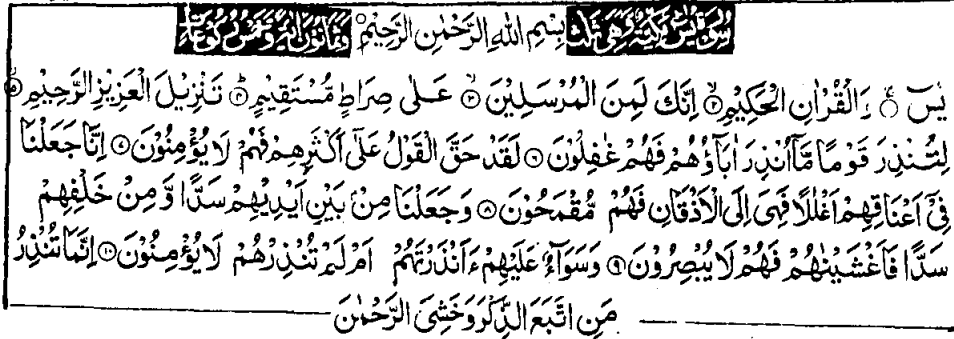 سورة يس مكية وهي ثلث بِسْمِ اللهِ الرَّحْمٰنِ الرَّحِيْمِ وثمانون اية وخمس ركوعات
يٰسٓ ۝ وَالْقُرْاٰنِ الْحَكِيْمِ ۝۲ اِنَّكَ لَمِنَ الْمُرْسَلِيْنَ ۝۳ عَلٰى صِرَاطٍ مُّسْتَقِيْمٍ ۝۴ تَنْزِيْلَ الْعَزِيْزِ الرَّحِيْمِ ۝۵
لِتُنْذِرَ قَوْمًا مَّآ اُنْذِرَ اٰبَآؤُهُمْ فَهُمْ غٰفِلُوْنَ ۝۶ لَقَدْ حَقَّ الْقَوْلُ عَلٰٓى اَكْثَرِهِمْ فَهُمْ لَا يُؤْمِنُوْنَ ۝۷ اِنَّا جَعَلْنَا
فِيْٓ اَعْنَاقِهِمْ اَغْلٰلًا فَهِيَ اِلَى الْاَذْقَانِ فَهُمْ مُّقْمَحُوْنَ ۝۸ وَجَعَلْنَا مِنْۢ بَيْنِ اَيْدِيْهِمْ سَدًّا وَّمِنْ خَلْفِهِمْ
سَدًّا فَاَغْشَيْنٰهُمْ فَهُمْ لَا يُبْصِرُوْنَ ۝۹ وَسَوَآءٌ عَلَيْهِمْ ءَاَنْذَرْتَهُمْ اَمْ لَمْ تُنْذِرْهُمْ لَا يُؤْمِنُوْنَ ۝۱۰ اِنَّمَا تُنْذِرُ
مَنِ اتَّبَعَ الذِّكْرَ وَخَشِيَ الرَّحْمٰنَ